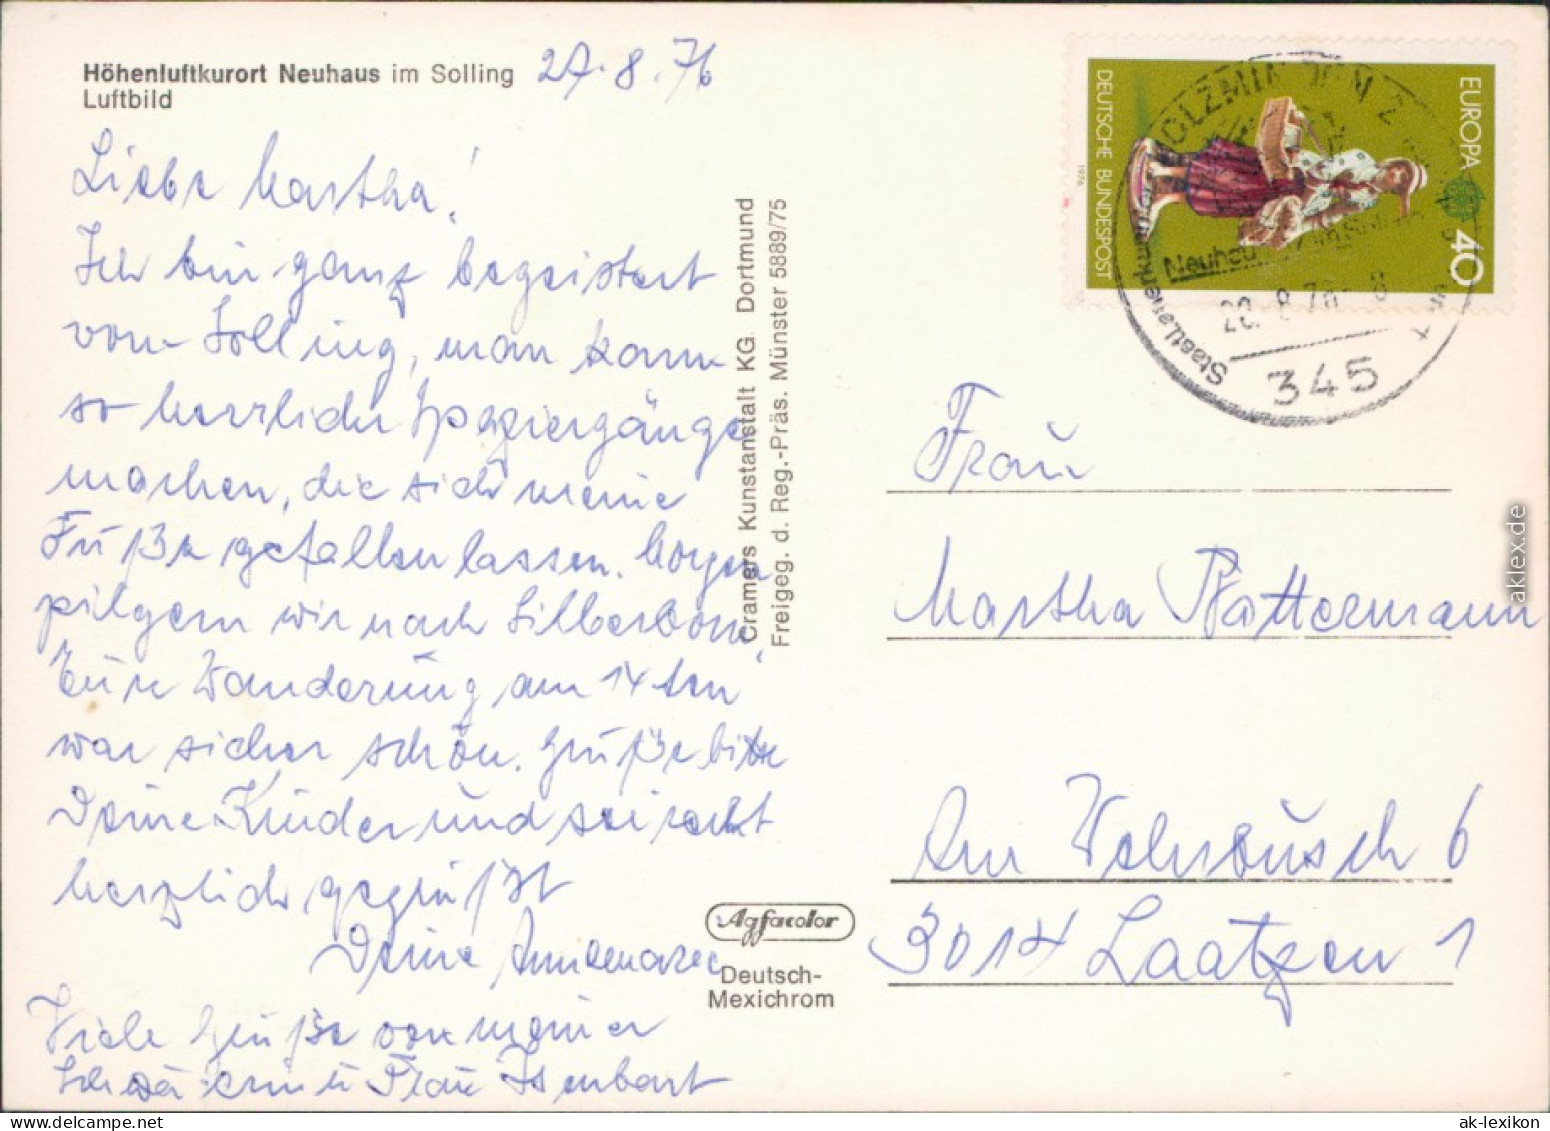 Höhenluftkurort Neuhaus im Solling
Luftbild
27.8.76
Liebe Martha!
Ich bin ganz begeistert
vom Solling, man kann
so herrliche Spaziergänge
machen, die sich meine
Füße gefallen lassen. Morgen
pilgern wir nach Silberborn.
Eure Wanderung am 14ten
war sicher schön. Grüße bitte
Deine Kinder und sei recht
herzlich gegrüßt
Deine Annemarie
Viele Grüße von meiner
Schwägerin Frau Isenbart
Cramers Kunstanstalt KG. Dortmund
Freigeg. d. Reg.-Präs. Münster 5889/75
Agfacolor
Deutsch-
Mexichrom
EUROPA
40
DEUTSCHE BUNDESPOST
1976
HOLZMINDEN 2
Neuhaus im Solling
28.-8.76-8
345
Frau
Martha Plattermann
Am Wehrbusch 6
3014 Laatzen 1
aklex.de
ak-lexikon